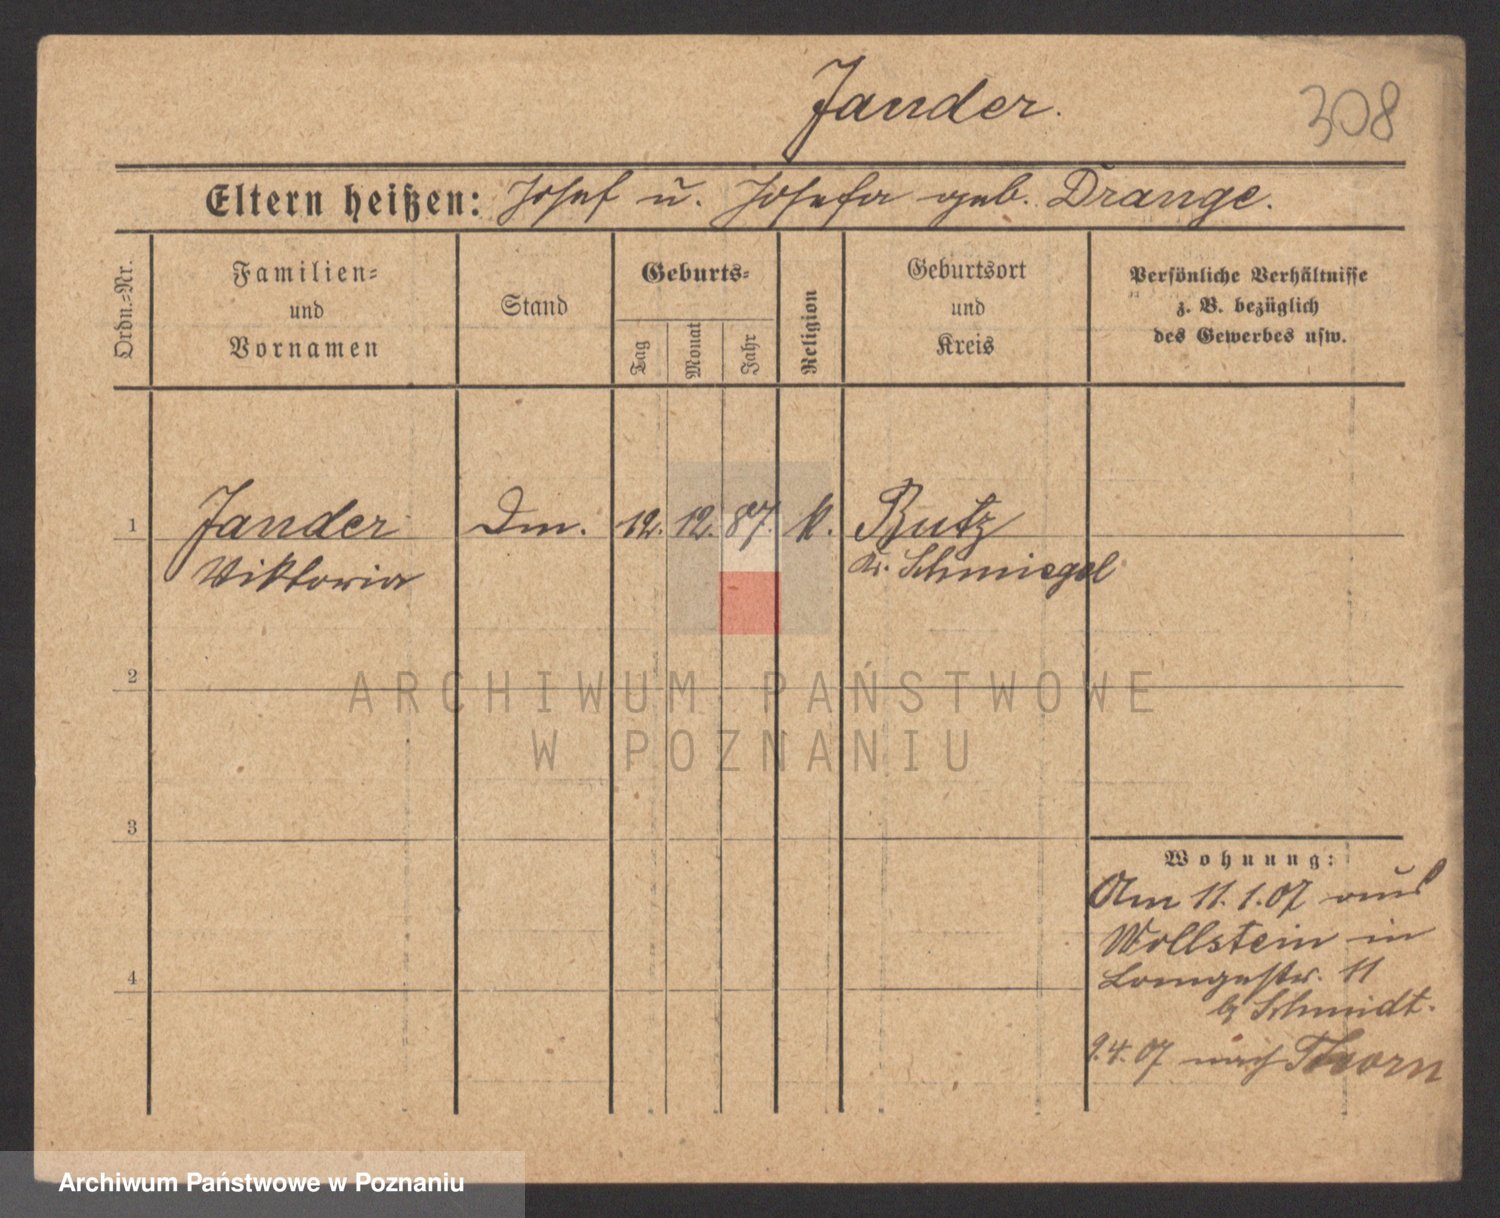 Jander.
308
Eltern heißen: Josef u. Josefa geb. Drange.
Ordn.-Nr.
Familien-
und
Vornamen
Stand
Geburts-
Tag
Monat
Jahr
Religion
Geburtsort
und
Kreis
Persönliche Verhältnisse
z. B. bezüglich
des Gewerbes usw.
1
Jander
Viktoria
Dm.
12. 12. 87. k.
Butz
Kr. Schmiegel
2
ARCHIWUM PAŃSTWOWE
W POZNANIU
3
Wohnung:
Am 11.1.07 aus
Wollstein in
Langestr. 11
b. Schmidt.
4
9.4.07 nach Thorn
Archiwum Państwowe w Poznaniu